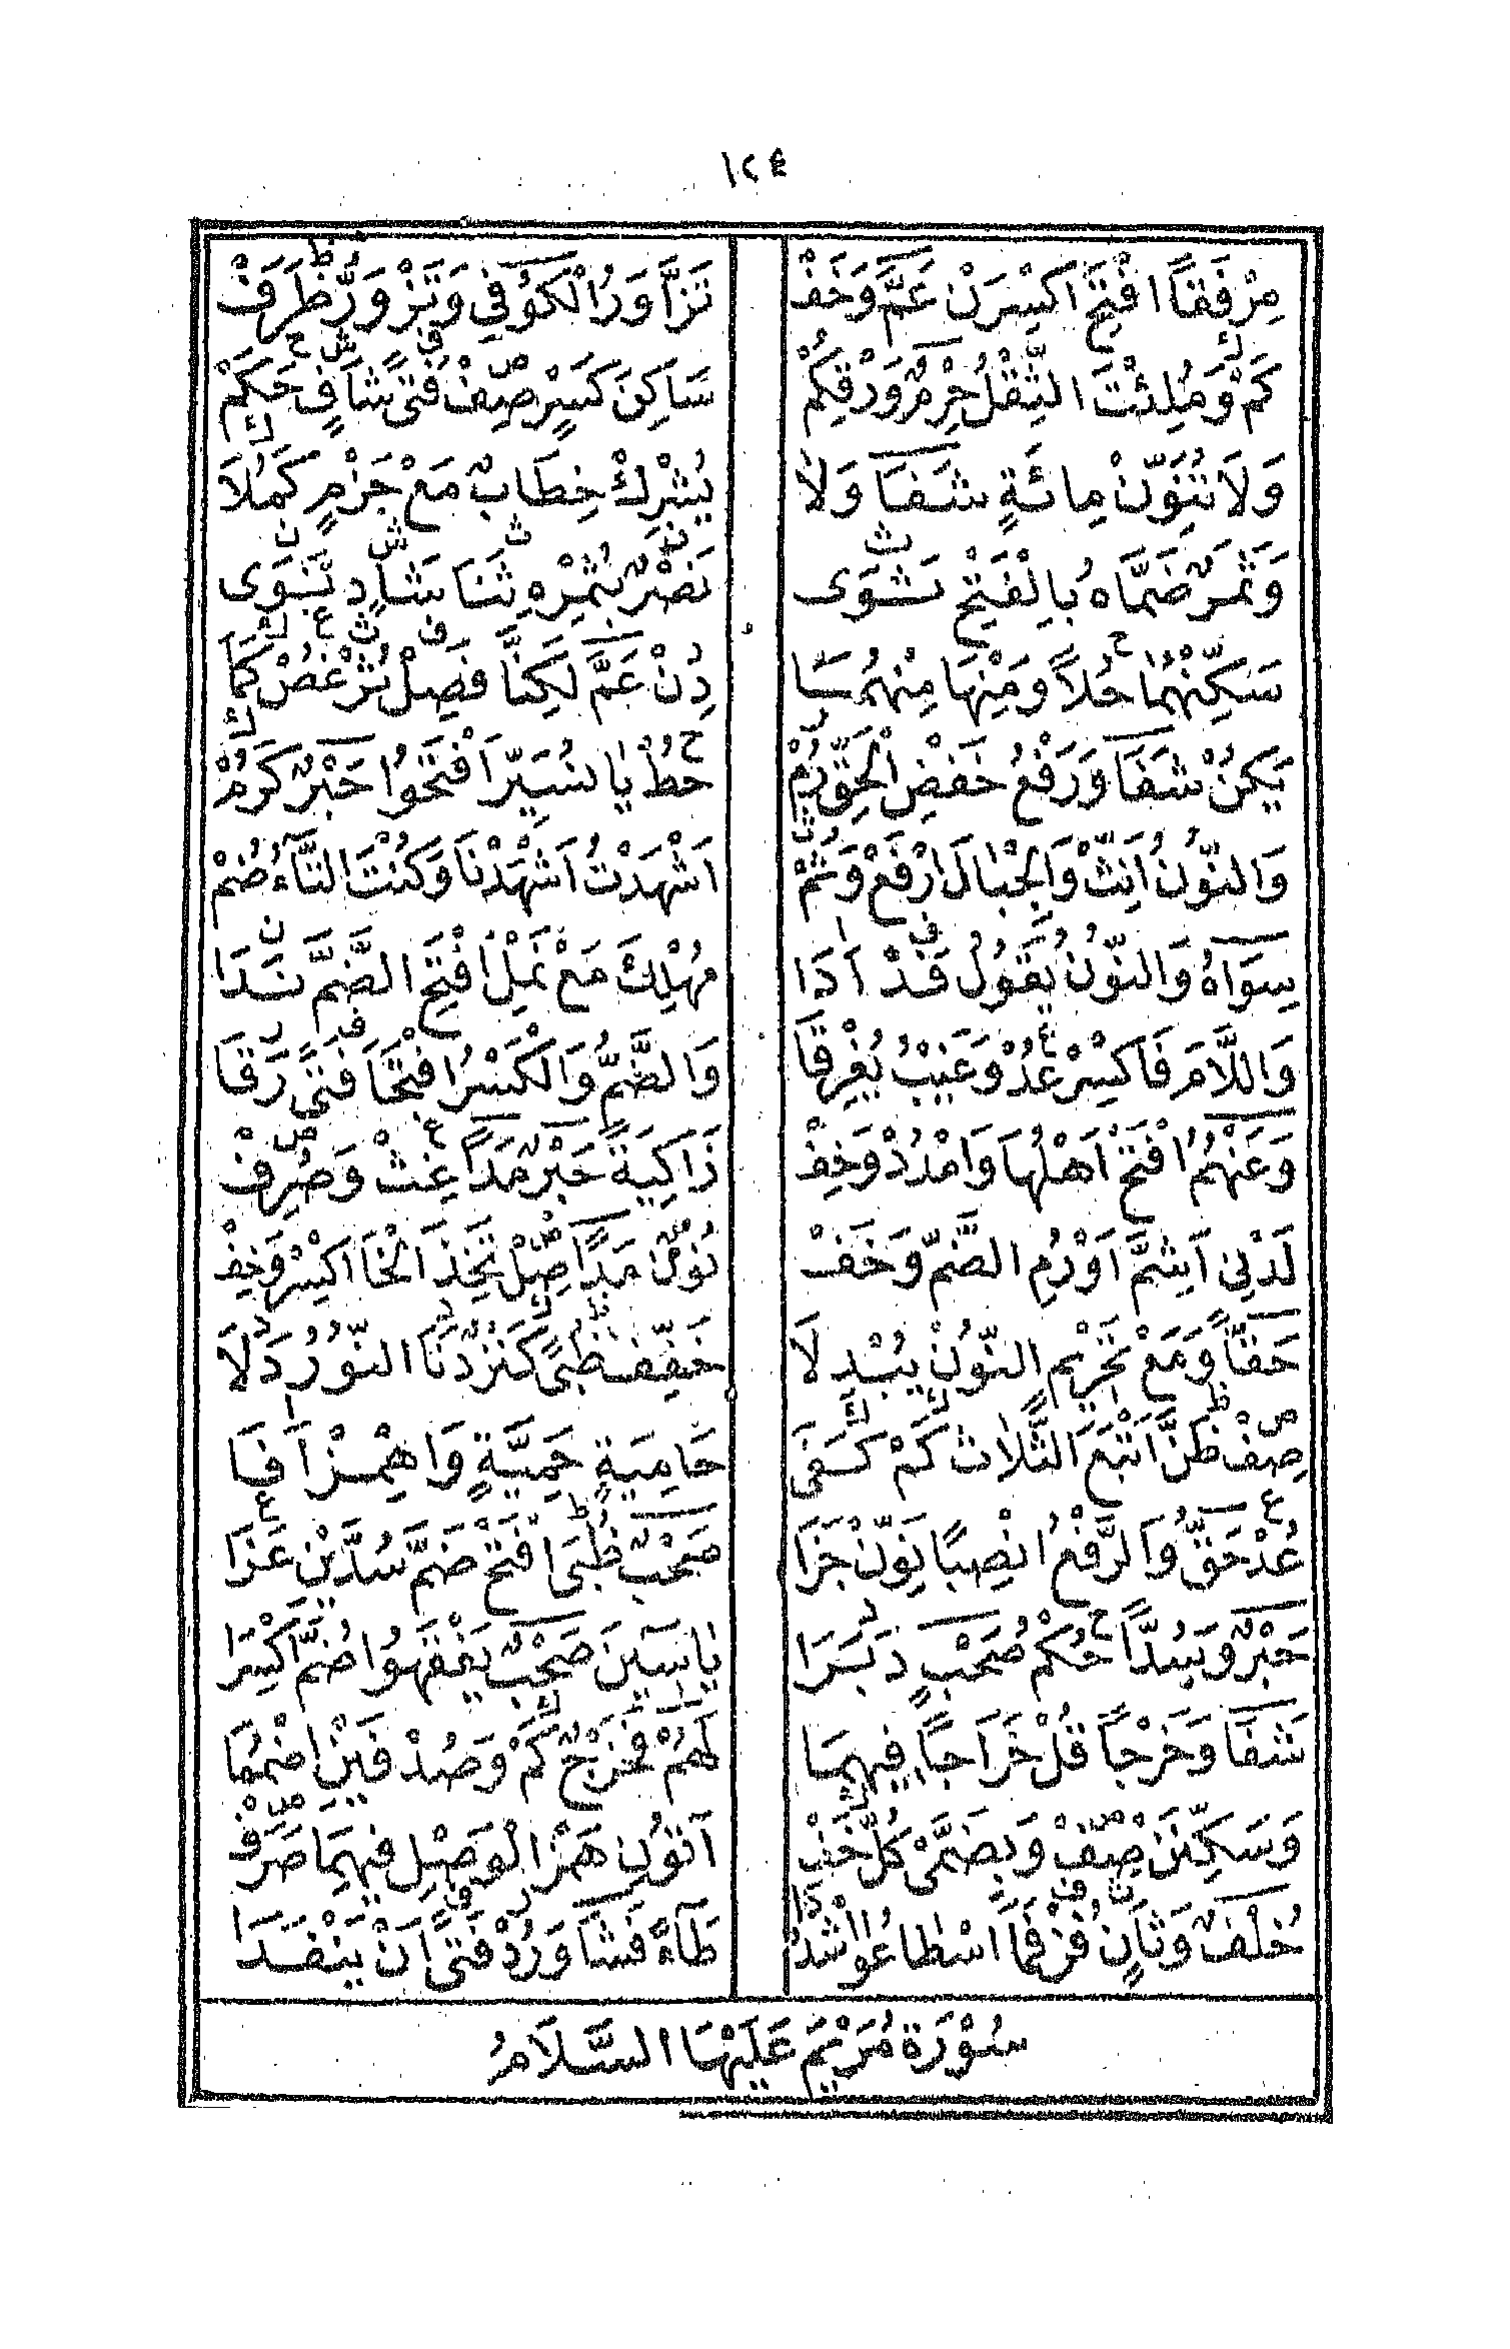 ١٢٤
مِرْفَقًا افْتَحَ اكْسِرَنْ عَمَّ وَخَفْ تَزَّاوَرُ الْكُوفِي وَتَزْوَرُّ ظَرَفْ
كَمْ وَمُلِئْتَ الثِّقْلُ حِرْمٌ وَرْقِكُمْ سَاكِنَ كَسْرٍ صِفْ فَتًى شَافٍ حَكَمْ
وَلَا تُنَوِّنْ مِائَةٍ شَفَا وَلَا يُشْرِكْ خِطَابٌ مَعْ جَزْمٍ كَمُلَا
وَثَمَرٌ ضَمَّاهُ بِالْفَتْحِ ثَوَى نَصْرٌ بِثُمْرِهِ ثَنَا شَادٍ نَوَى
سَكِّنْهُمَا حُلًا وَمِنْهَا مِنْهُمَا دِنْ عَمَّ لَكِنَّا فَصِلْ ثُرْ غُصْ كَمَا
يَكُنْ شَفَا وَرَفْعُ خَفْضِ الْحَقِّ رُمْ حُطْ يَا نُسَيِّرُ افْتَحُوا حَبْرٌ كَرُمْ
وَالنُّونُ أَنِّثْ وَالْجِبَالَ ارْفَعْ وَثَمْ أَشْهَدْتُ أَشْهَدْنَا وَكُنْتَ التَّاءَ ضُمْ
سِوَاهُ وَالنُّونُ يَقُولُ فَدْ أَدَا مُهْلَكَ مَعْ نَمْلِ افْتَحِ الضَّمَّ نَدَا
وَاللَّامَ فَاكْسِرْ عُدْ وَغَيْبُ يُغْرِقَا وَالضَّمُّ وَالْكَسْرُ افْتَحًا فَتًى رَقَا
وَعَنْهُمُ افْتَحْ أَهْلُهَا وَامْدُدْ وَخِفْ زَاكِيَةً حَبْرٌ مَدَا غِثْ وَصُرِفْ
لَدْنِي أَشِمَّ أَوْ رُمِ الضَّمَّ وَخَفْ نُونٌ مَدًا صِلْ تَخِذَ الْخَا اكْسِرْ وَخِفْ
حَقًّا وَمَعْ تَحْرِيمٍ النُّونُ يُبْدِلَا خَفِّفْ ظُبًى كَنْزٌ دَنَا النُّورُ دَلَا
صِفْ ظَنَّ أَتْبَعَ الثَّلَاثُ كَمْ كَفَى حَامِيَةٍ حَمِيَّةٍ وَاهْمِزْ أَفَا
عُدْ حَقُّ وَالرَّفْعُ انْصِبًا نَوِّنْ جَزَا صَحْبٌ ظُبًى افْتَحْ ضَمَّ سُدَّيْنِ عَزَا
حَبْرٌ وَسُدًّا حُكْمُ صَحْبٍ دَبَرَا يَاسِينَ صَحْبٌ يَفْقَهُوا ضُمَّ اكْسِرَا
شَفَا وَخَرْجًا قُلْ خَرَاجًا فِيهِمَا لَهُمْ فَخَرْجٌ كَمْ وَصُدْفَيْنِ اضْمُمَا
وَسَكِّنَنْ صِفْ وَبِضَمَّيْ كُلُّ حَقْ آتُونِ هَمْزُ الْوَصْلِ فِيهِمَا صَدَقْ
خُلْفٌ وَثَانٍ فُزْ فَمَا اسْطَاعُوا اشْدُدَا طَاءً فَشَا وَرُدْ فَتًى أَنْ يَنْفَدَا
سُوْرَةُ مَرْيَمَ عَلَيْهَا السَّلَامُ